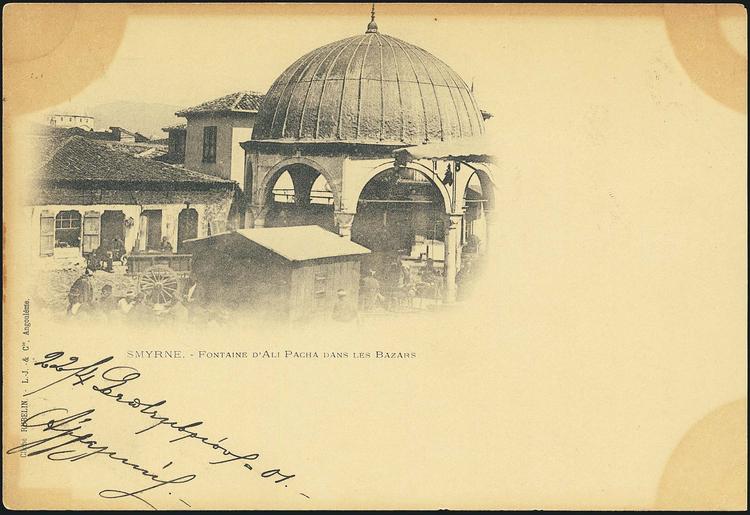 SMYRNE. - FONTAINE D'ALI PACHA DANS LES BAZARS
Cliché RUBELLIN - L.-J. & Cie. Angoulême.
22/4 Σεπτεμβρίου - 01. -